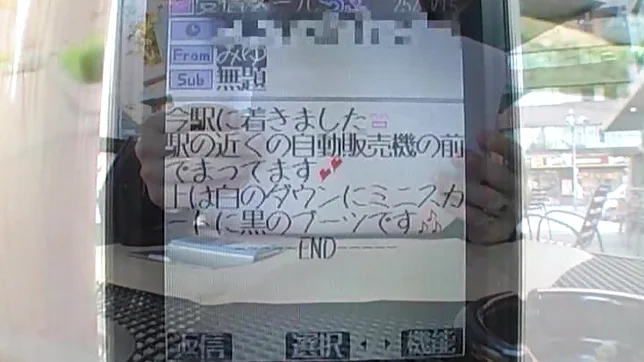 受信メール
From みゆ
Sub 無題
今駅に着きました
駅の近くの自動販売機の前
でまってます
上は白のダウンにミニスカ
ートに黒のブーツです
-----END-----
返信 選択 機能